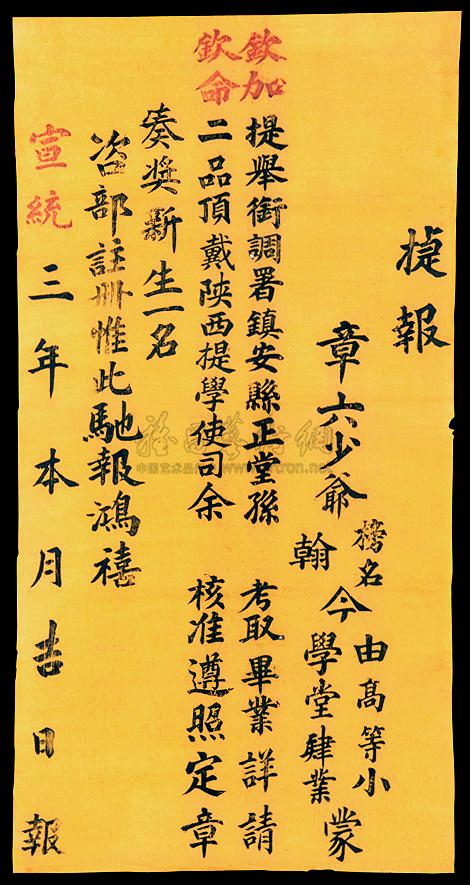 捷報
章六少爺
榜名
翰
今
由高等小
學堂肄業
蒙
欽加提舉銜調署鎮安縣正堂孫 考取畢業詳請
欽命二品頂戴陝西提學使司余 核准遵照定章
奏奬新生一名
咨部註冊惟此馳報鴻禧
宣統三年本月吉日報